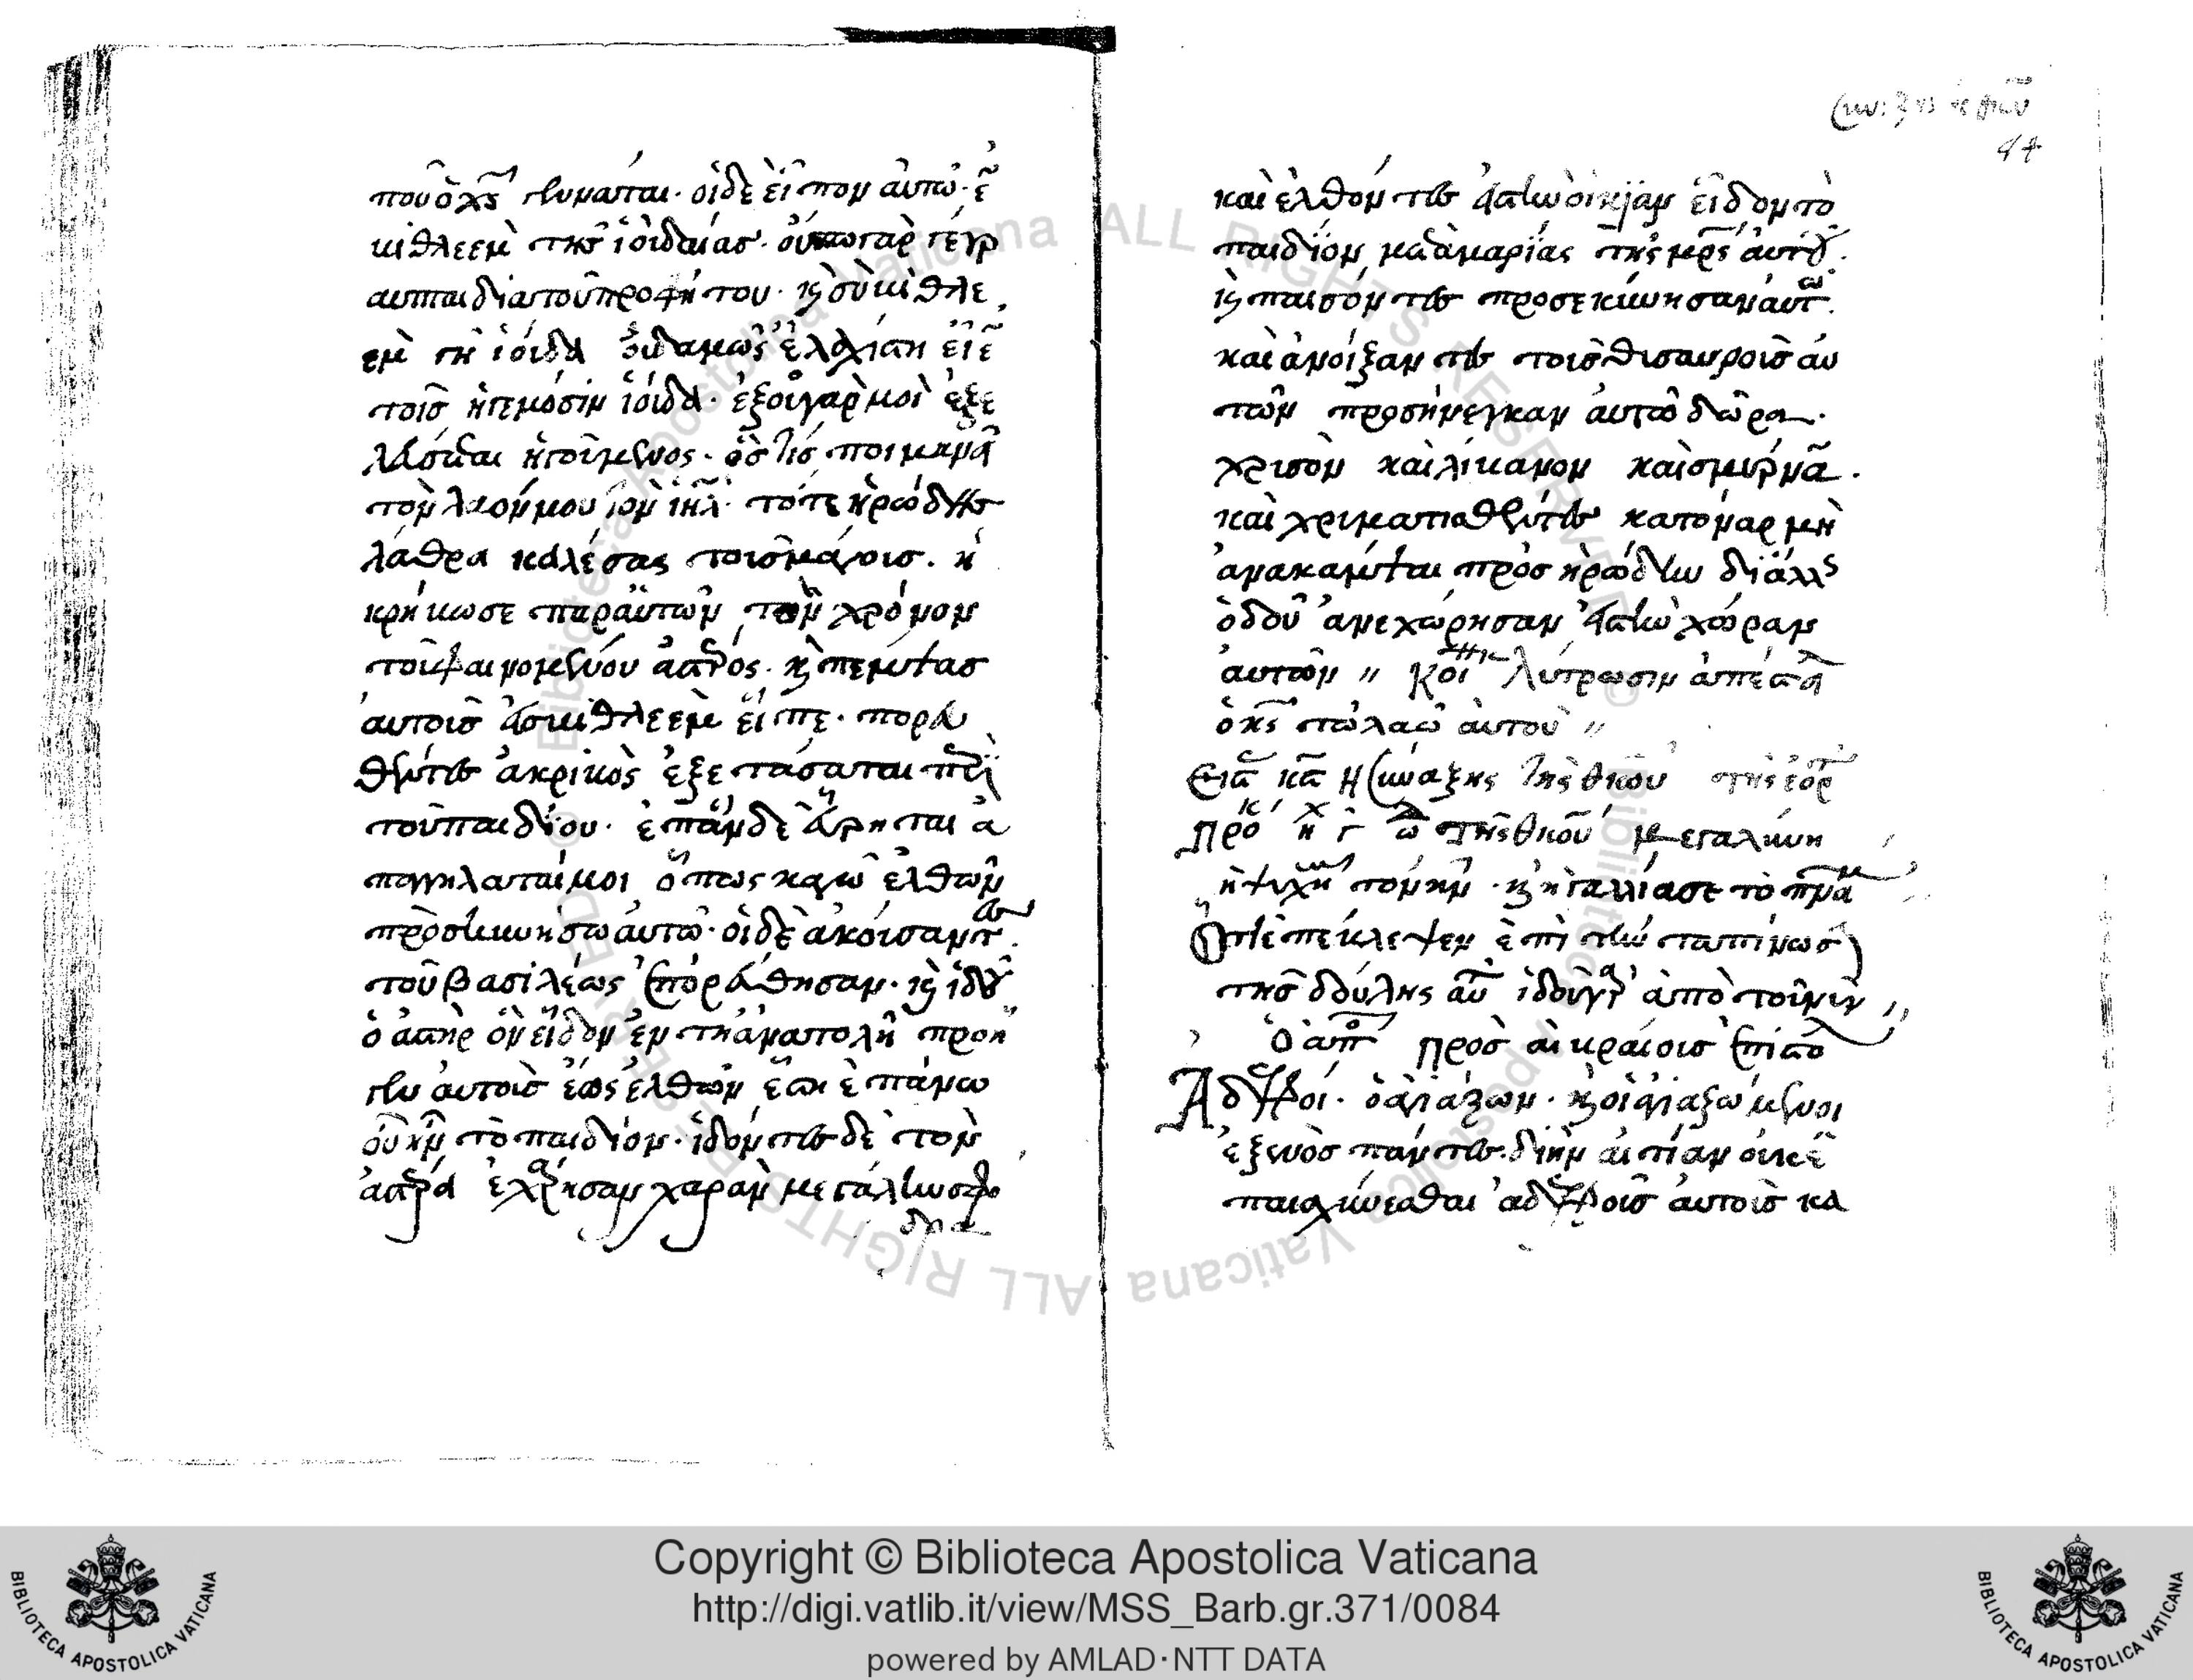 ποῦ ὁ χ̅ς̅ γενᾶται· οἱ δὲ εἶπον αὐτῶ· ἐ
βιθλεὲμ τῆς ἰοιδαίας· οὕτω γὰρ γέγρ
απται διὰ τοῦ προφήτου· κ̀ σὺ βιθλε
ὲμ γῆ ἰοίδα οὐδαμῶς ἐλαχίστη εἶ ἐ̅
τοῖς ἡγεμόσιν ἰοίδα· ἐξοῦ γάρ μοὶ ἐξε
λεύσεται ἡγούμενος· ὅστις ποιμανεῖ
τὸν λαόν μου τὸν ι̅η̅λ̅· τότε ἡρώδης
λάθρα καλέσας τοὶς μάγοις. ἠ
κρήβωσε παρ αὐτῶν τὸν χρόνον
τοῦ φαινομένου ἀστέρος· κ̀ πέμψας
αὐτοὶς εἰς βιθλεὲμ εἶπε· πορευ
θέντες ἀκριβὸς ἐξετάσαται περὶ
τοῦ παιδίου· ἐπὰν δὲ εὕρηται ἀ
παγγήλαταί μοι ὅπως καγὼ ἐλθὼν
πρὸσκυνήσω αὐτῶ· οἱ δὲ ἀκοίσαντες
τοῦ βασιλέως ἐπορεύθησαν· κ̀ ἰδοὺ
ὁ ἀστὴρ ὃν εἶδον ἐν τῆ ἀνατολῆ προῆ
γεν αὐτοὶς ἕως ἐλθὼν ἔστη ἐπάνω
οὗ ἦν τὸ παιδίον· ἰδόντες δὲ τὸν
ἀστέρα ἐχάρησαν χαρὰν μεγάλην σφο
δρα
44
καὶ ἐλθόντες εἰς τὴν οἰκίαν εἶδον τὸ
παιδίον μετὰ μαρίας τῆς μ̅ρ̅ς̅ αὐτοῦ.
κ̀ παισόντες προσεκύνησαν αὐτῶ.
καὶ ἀνοίξαντες τοὶς θισαυροὶς αυ
τῶν προσήνεγκαν αὐτῶ δῶρα·
χρισὸν καὶ λίβανον καὶ σμύρναν.
καὶ χριματισθέντες κατόναρ μὴ
ἀνακάμψαι πρὸς ἡρώδην δι ἄλλης
ὁδοῦ ἀνεχώρησαν εἰς τὴν χώραν
αὐτῶν 〃 Κοι Λύτρωσιν ἀπέστει
ὁ κ̅ς̅ τῶ λαῶ αὐτοῦ 〃
ἡ σύναξης τῆς θκου
Προκ τῆς θκου μεγαλήνη
ἡ ψυχή τὸν κ̅ν̅· κ̀ ἠγαλλίασε τὸ πν̅α
Ὅτι ἐπέβλεψεν ἐπὶ τὴν ταπίνωσ
τῆς δούλης αὐτοῦ ἰδοὺ γὰρ ἀπὸ τοῦ νῦν
Ὁ ἀπο πρὸς αἰβραίοις ἐπιστο
Ἀδελφοί· ὁ ἁγιάζων· κ̀ οἱ ἁγιαζώμενοι
ἐξ ενὸς πάντες· δι ἣν αἰτίαν οὐκ ἐ
παισχύνεσθαι ἀδελφοὺς αὐτοὶς κα
Copyright © Biblioteca Apostolica Vaticana
http://digi.vatlib.it/view/MSS_Barb.gr.371/0084
powered by AMLAD·NTT DATA